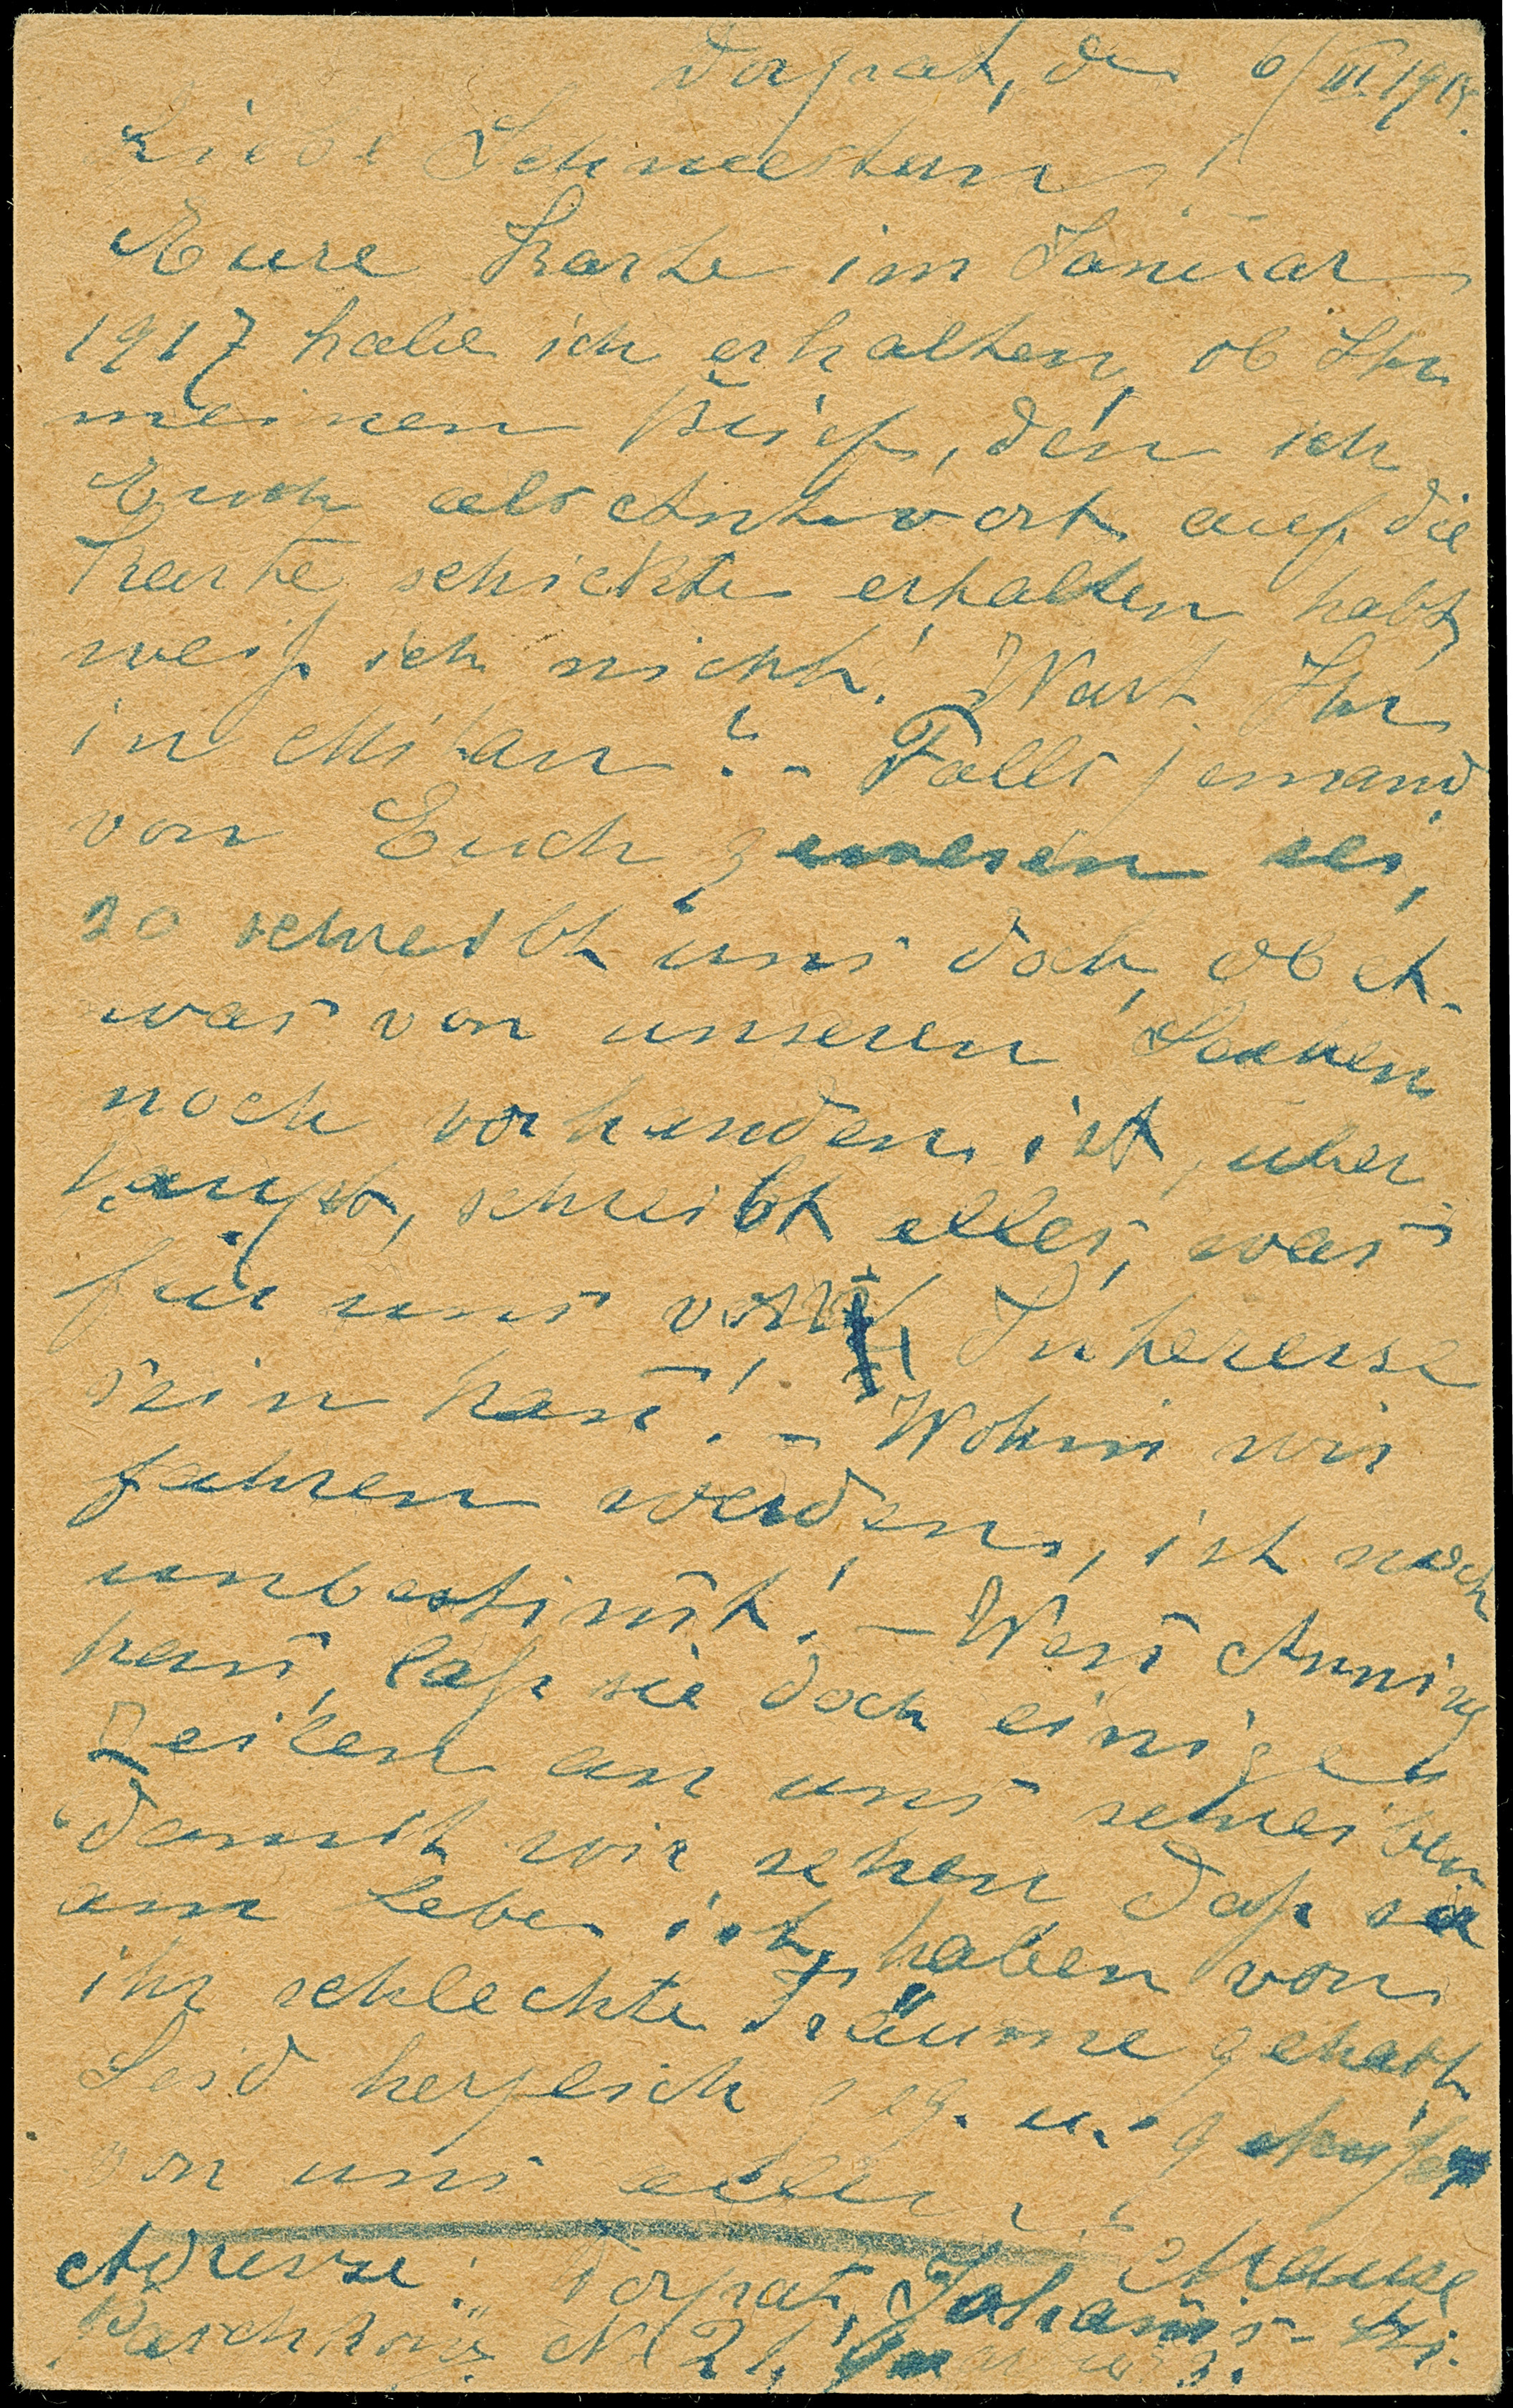 Dorpat, den 6/III. 1918.
Liebe Schwestern!
Eure Karte im Januar
1917 habe ich erhalten, ob Ihr
meinen Brief, den ich
Euch als Antwort auf die
Karte schickte erhalten habt,
weiß ich nicht! Wart Ihr
in Mitau? – Falls jemand
von Euch gewesen sei,
so schreibt uns doch, ob et-
was von unseren Sachen
noch vorhanden ist, über-
haupt, schreibt alles, was
für uns von Interesse
sein kan̄! – Wohin wir
fahren werden, ist noch
unbestim̄t! – Wen̄ Anning
kan̄, laß sie doch einige
Zeilen an uns schreiben
damit wir sehen daß sie
am Leben ist, haben von
ihr schlechte Träume gehabt.
Seid herzlich geg. u. geküßt
von uns allen
Adresse: Dorpat, Johan̄is-Str.
N 21,